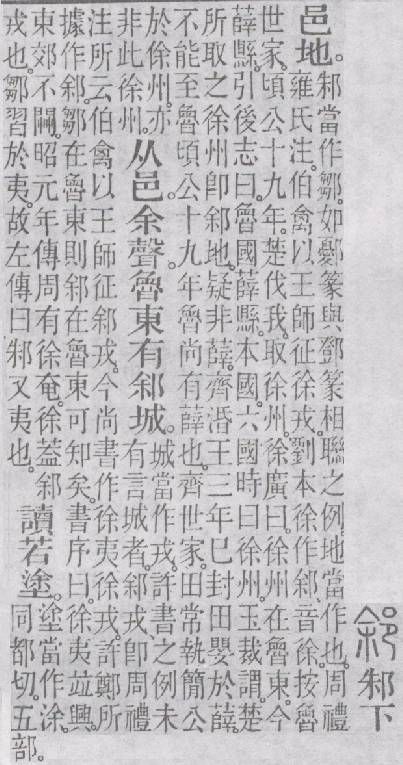 䣄邾下
邑地。
邾當作鄒。如鄾篆與鄧篆相聯之例。地當作也。周禮
雍氏注。伯禽以王師征徐戎。劉本徐作䣄。音徐。按魯
世家。頃公十九年。楚伐我。取徐州。徐廣曰。徐州在魯東。今
薛縣。引後志曰。魯國薛縣。本國。六國時曰徐州。玉裁謂。楚
所取之徐州卽䣄地。疑非薛。齊湣王三年巳封田嬰於薛。
不能至魯頃公十九年魯尚有薛也。齊世家。田常執簡公
於徐州。亦
非此徐州。
从邑余聲。魯東有䣄城。
城當作戎。許書之例未
有言城者。䣄戎卽周禮
注所云伯禽以王師征䣄戎。今尚書作徐夷徐戎。許鄭所
據作䣄。鄒在魯東則䣄在魯東可知矣。書序曰。徐夷竝興。
東郊不闢。昭元年傳周有徐奄。徐蓋䣄
戎也。鄒習於夷。故左傳曰邾又夷也。
讀若塗。
塗當作涂。
同都切。五部。